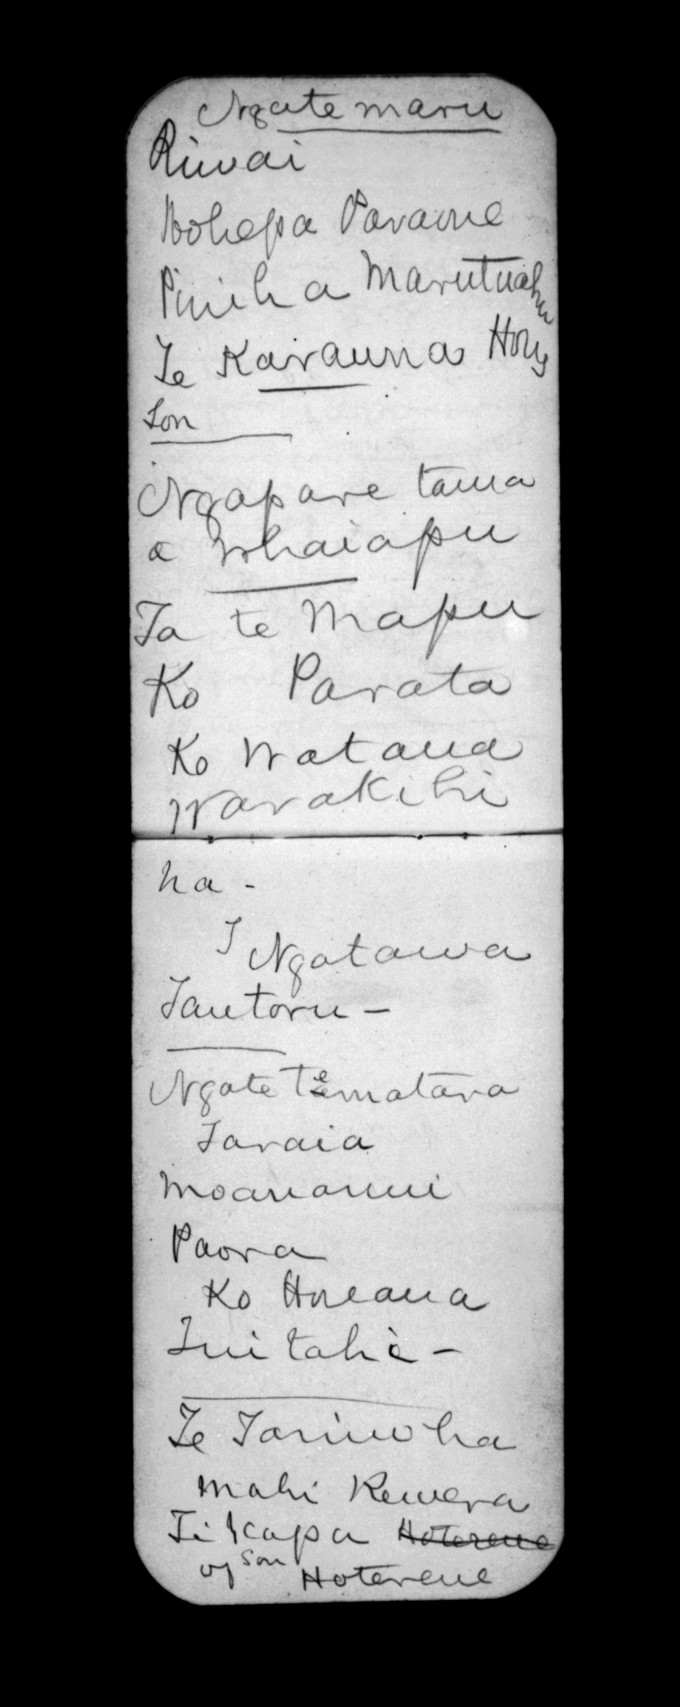 Ngatemaru
Riwai
Hohepa Paraone
Piniha Marutuahu
Te Karauna Hou's
Son
Ngapare taua
a Whaiapu
Ta te Mapu
Ko Parata
Ko Wataua
Warakihi
ha -
I Ngatawa
Tautoru -
Ngate Tematara
Taraia
Moananui
Paora
Ko Horeana
Tuitahi -
Te Tariuoha
Mahi Rewera
Ti Kapa Hoterene
of son Hoterene